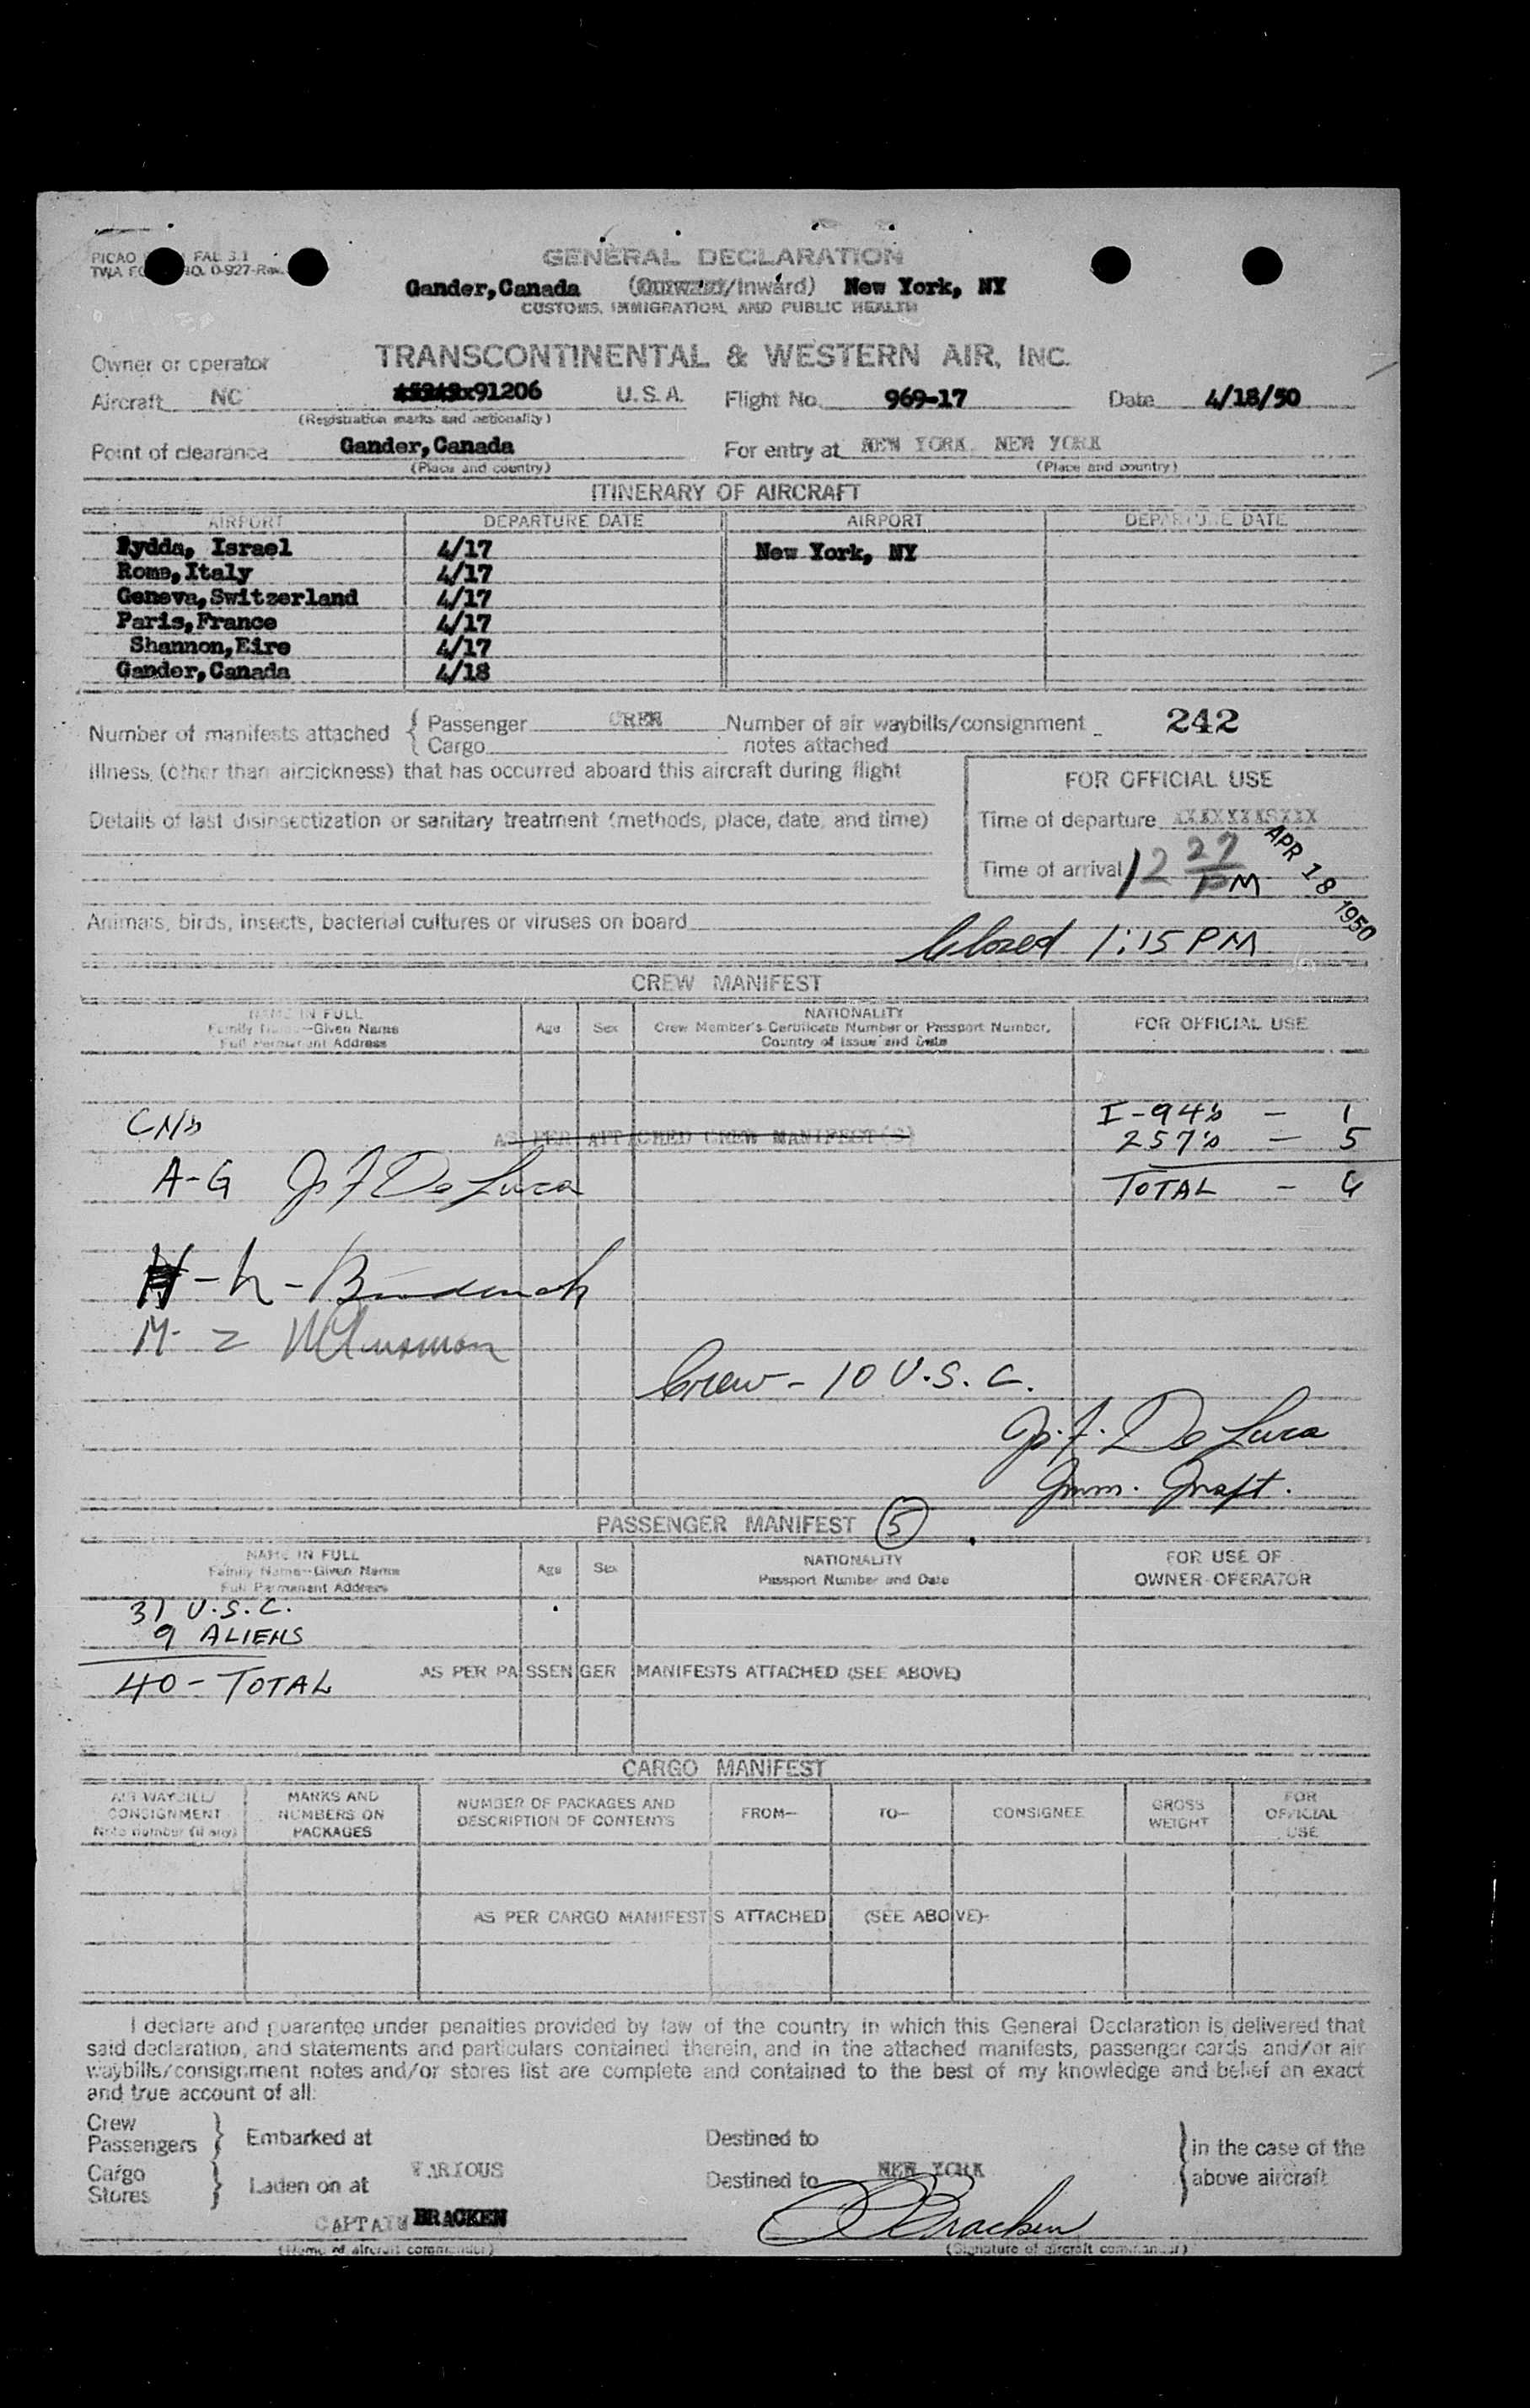 GENERAL DECLARATION
PICAO FAL 3.1
TWA NO. 0-927-Rev.
Gander,Canada (Outward/Inward) New York, NY
CUSTOMS, IMMIGRATION, AND PUBLIC HEALTH
Owner or operator TRANSCONTINENTAL & WESTERN AIR, INC.
Aircraft NC 91206 U.S.A. Flight No. 969-17 Date 4/18/50
(Registration marks and nationality)
Point of clearance Gander,Canada For entry at NEW YORK, NEW YORK
(Place and country) (Place and country)
ITINERARY OF AIRCRAFT
AIRPORT DEPARTURE DATE AIRPORT DEPARTURE DATE
Lydda, Israel 4/17 New York, NY
Rome,Italy 4/17
Geneva,Switzerland 4/17
Paris,France 4/17
Shannon,Eire 4/17
Gander,Canada 4/18
Number of manifests attached { Passenger CREW Number of air waybills/consignment 242
Cargo notes attached
Illness, (other than airsickness) that has occurred aboard this aircraft during flight
FOR OFFICIAL USE
Details of last disinsectization or sanitary treatment (methods, place, date, and time)
Time of departure
Time of arrival 12 27 PM
APR 18 1950
Animals, birds, insects, bacterial cultures or viruses on board
Closed 1:15 PM
CREW MANIFEST
NAME IN FULL
Family Name—Given Name
Full Permanent Address
Age Sex
NATIONALITY
Crew Member's Certificate Number or Passport Number,
Country of Issue and Date
FOR OFFICIAL USE
I-94s — 1
AS PER ATTACHED CREW MANIFEST(S)
257's — 5
A-G J. F. De Luca
TOTAL — 6
M - Z
Crew - 10 U.S.C.
J. F. De Luca
Imm. Inspt.
PASSENGER MANIFEST 5
NAME IN FULL
Family Name—Given Name
Full Permanent Address
Age Sex
NATIONALITY
Passport Number and Date
FOR USE OF
OWNER-OPERATOR
31 U.S.C.
9 ALIENS
40 - TOTAL
AS PER PASSENGER MANIFESTS ATTACHED (SEE ABOVE)
CARGO MANIFEST
AIR WAYBILL/
CONSIGNMENT
Note number (if any)
MARKS AND
NUMBERS ON
PACKAGES
NUMBER OF PACKAGES AND
DESCRIPTION OF CONTENTS
FROM—
TO—
CONSIGNEE
GROSS
WEIGHT
FOR
OFFICIAL
USE
AS PER CARGO MANIFESTS ATTACHED (SEE ABOVE)
I declare and guarantee under penalties provided by law of the country in which this General Declaration is delivered that
said declaration, and statements and particulars contained therein, and in the attached manifests, passenger cards and/or air
waybills/consignment notes and/or stores list are complete and contained to the best of my knowledge and belief an exact
and true account of all:
Crew
Passengers } Embarked at Destined to } in the case of the
Cargo
Stores } Laden on at VARIOUS Destined to NEW YORK above aircraft
CAPTAIN BRACKEN Bracken
(Name of aircraft commander) (Signature of aircraft commander)